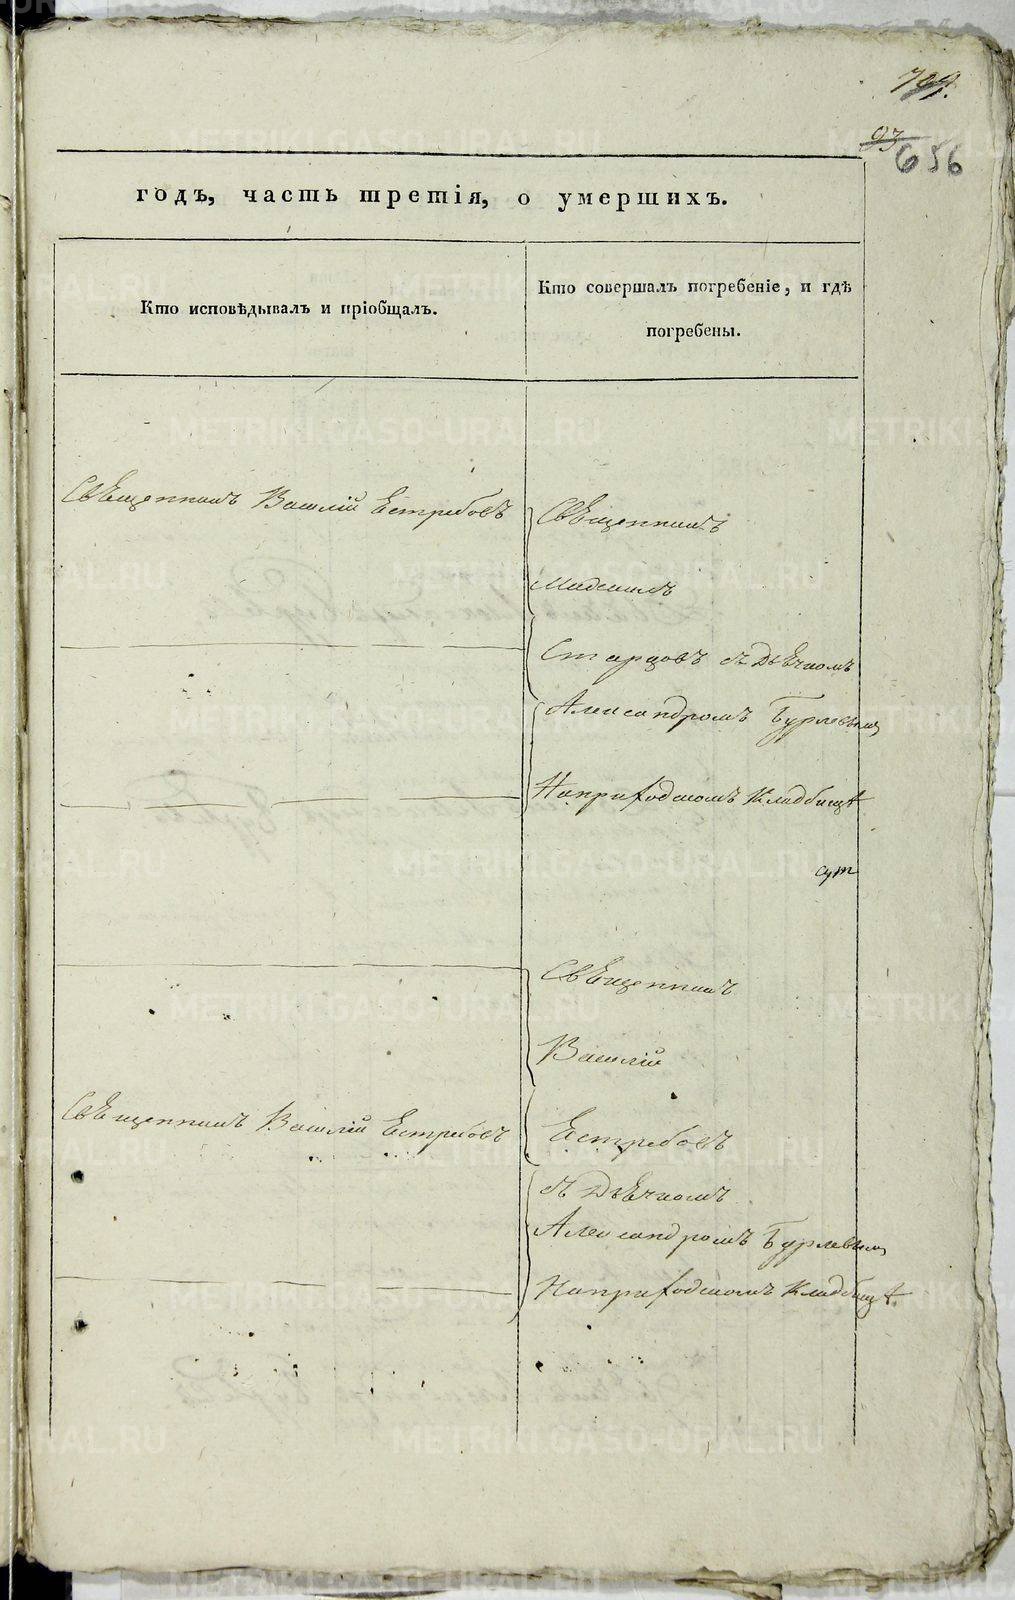 709.
93
656
годъ, часть третія, о умершихъ.
Кто исповѣдывалъ и пріобщалъ.
Кто совершалъ погребеніе, и гдѣ
погребены.
Священникъ Василій Естребовъ
Священникъ
Михаилъ
Старцовъ съ Дьячкомъ
Александромъ Бурлевымъ
На приходскомъ Кладбищѣ
Священникъ
Василій
Священникъ Василій Естребовъ
Естребовъ
съ Дьячкомъ
Александромъ Бурлевымъ
На приходскомъ Кладбищѣ.
METRIKI.GASO-URAL.RU